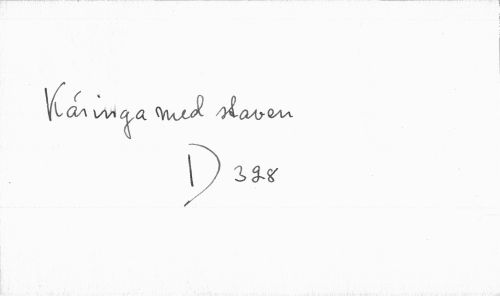 Káringa med staven
D 328